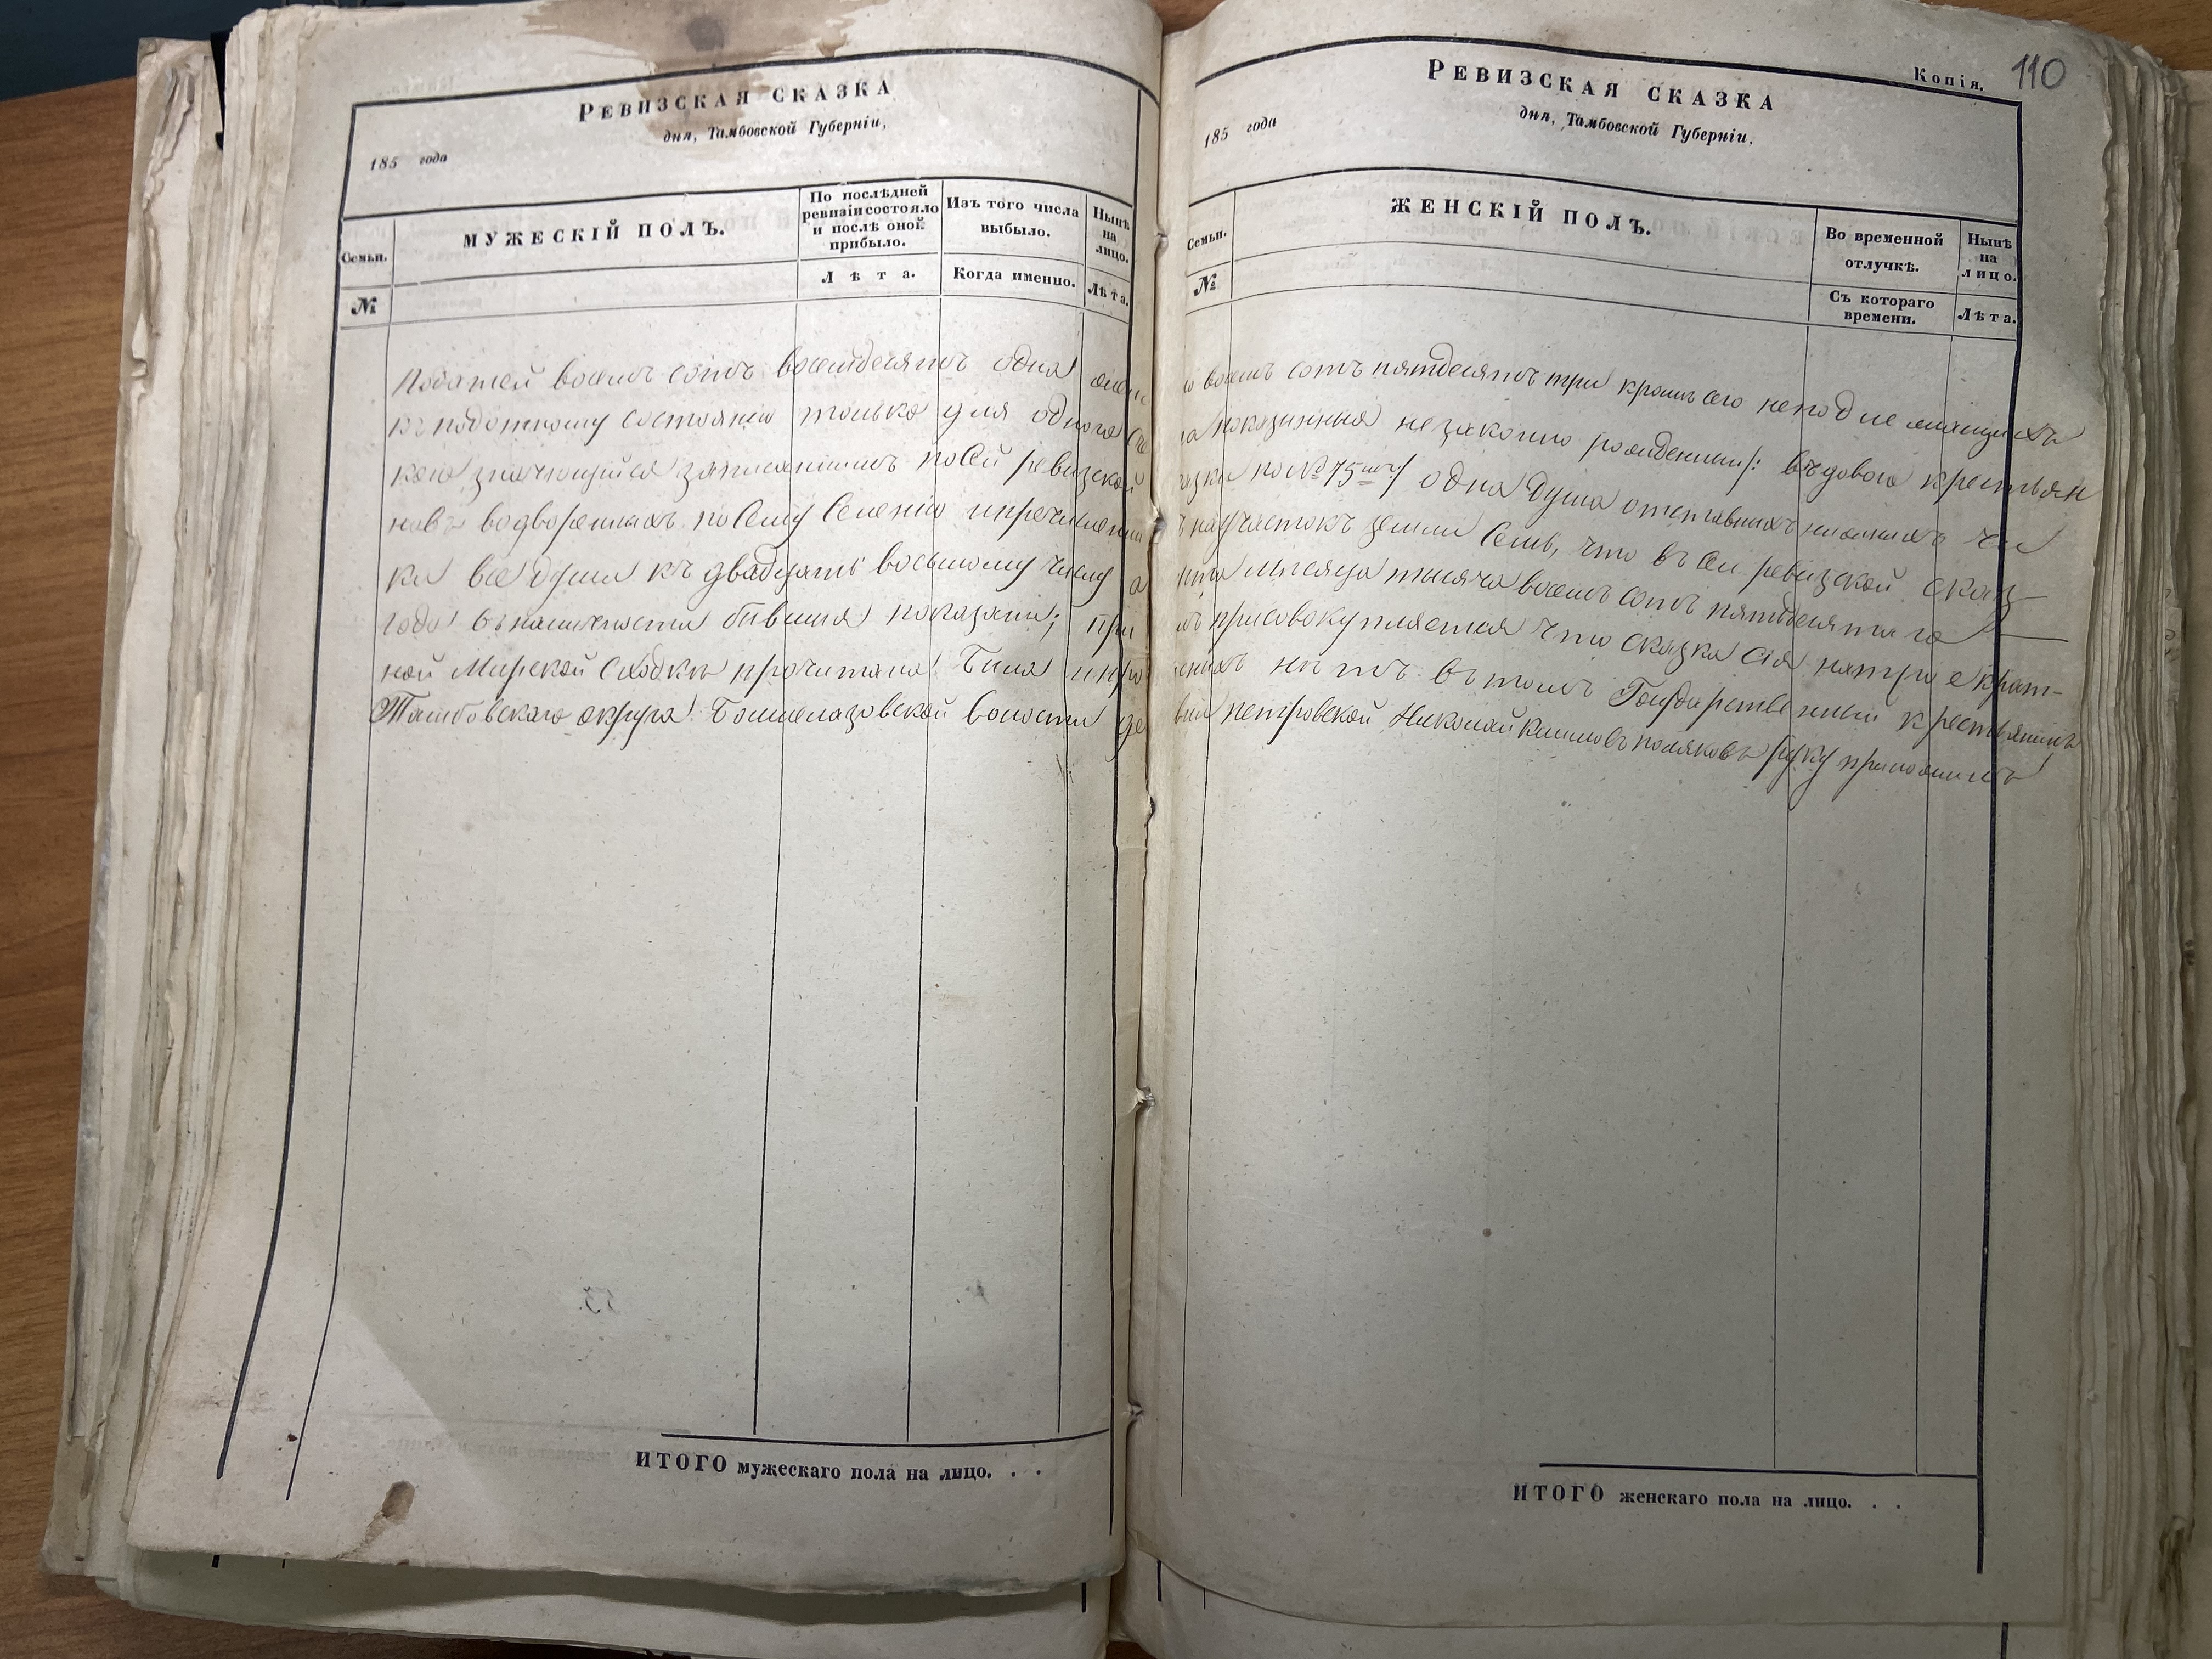 РЕВИЗСКАЯ СКАЗКА
дня, Тамбовской Губерніи,
185 года
Семьи.
МУЖЕСКІЙ ПОЛЪ.
По послѣдней ревизіи состояло и послѣ оной прибыло.
Изъ того числа выбыло.
Нынѣ на лицо.
№
Лѣта.
Когда именно.
Лѣта.
Податей восемъ сотъ восемдесятъ одна
къ податному состоянію только для одного
кою значущійся записаннымъ по сей ревизской
новъ водворенныхъ по сему селенію и
ки все души къ двадцать восьмому числу а
года въ наличности бывшія показаны; при
ной Мирской сходкѣ прочитана была и
Тамбовскаго округа волости де
ИТОГО мужескаго пола на лицо. . .
Копія.
110
РЕВИЗСКАЯ СКАЗКА
дня, Тамбовской Губерніи,
185 года
Семьи.
ЖЕНСКІЙ ПОЛЪ.
Во временной отлучкѣ.
Нынѣ на лицо.
№
Съ котораго времени.
Лѣта.
восемъ сотъ пятдесятъ три кромѣ сего неподлежащихъ
показанная незаконно рожденный /: вѣдовою крестьян
по № 75 /: одна душа отставныхъ нижнихъ чи
на участокъ земли семь, что въ сей ревизской сказ
Мѣсяца тысяча восемъ сотъ пятдесятаго
присовокупляется что сказка сія на трі екрат-
нѣтъ въ томъ Государственный крестьянинъ
Петровской Николай Климовъ Поляковъ руку приложилъ
ИТОГО женскаго пола на лицо. . .